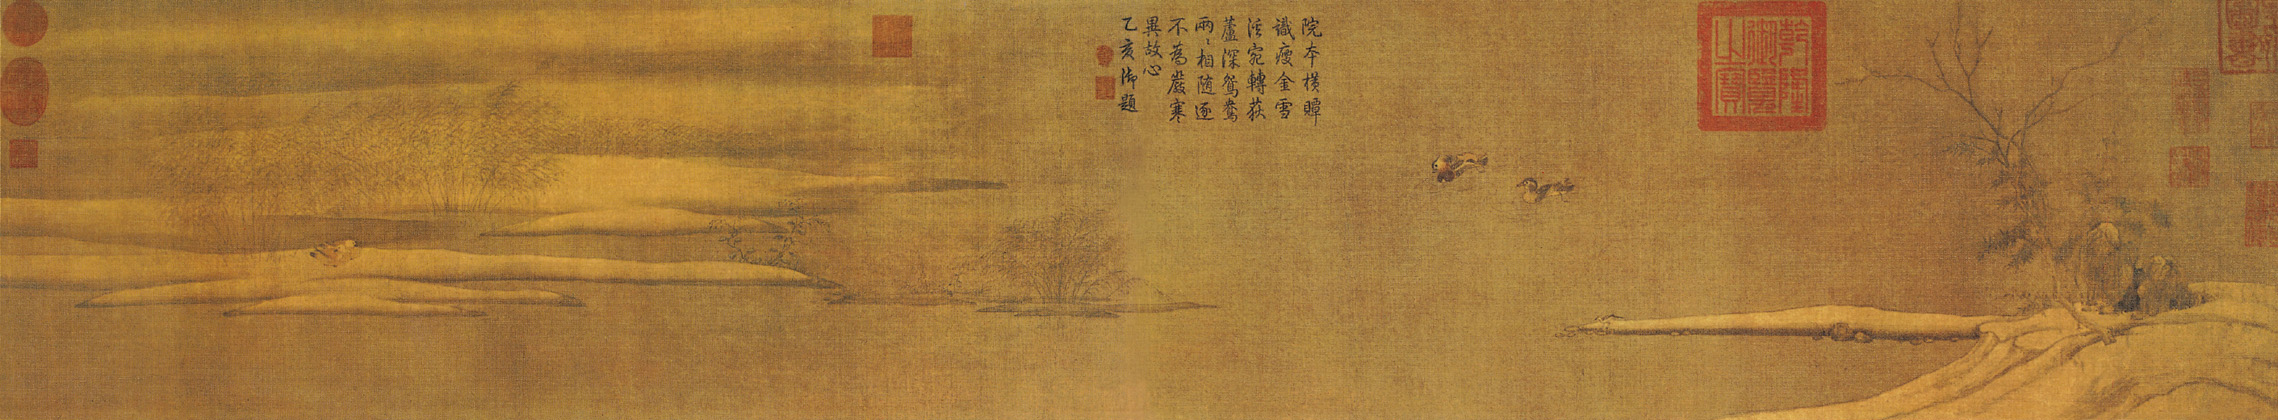 院本橫贉
識瘦金雪
溪宛轉荻
蘆深鴛鴦
兩〻相隨逐
不為嚴寒
異故心
乙亥御題
乾隆
御覽
之寶